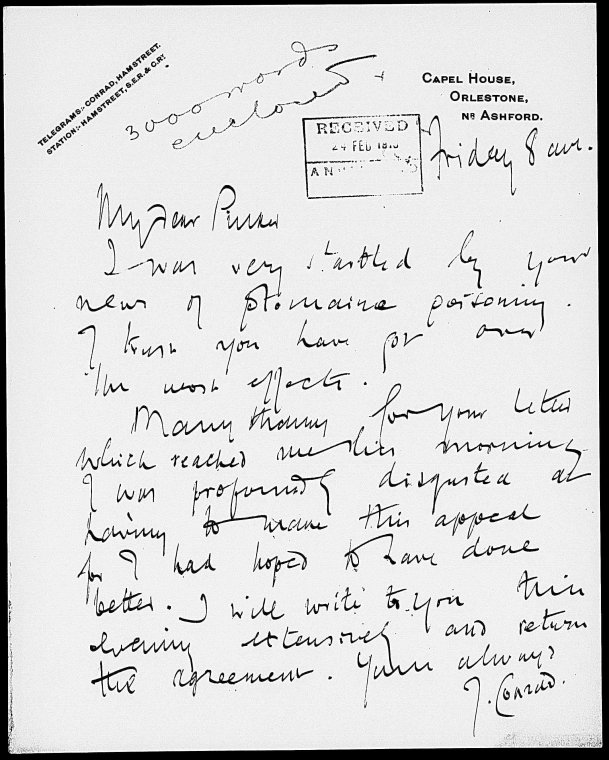 TELEGRAMS:- CONRAD, HAMSTREET.
STATION:- HAMSTREET, S.E.R. & C.RY.
3000 words
enclosed
CAPEL HOUSE,
ORLESTONE,
NR ASHFORD.
RECEIVED
24 FEB
Friday 8 am.
My dear Pinker
I was very startled by your
news of ptomaine poisoning.
I trust you have got over
the worst effects.
Many thanks for your letter
which reached me this morning
I was profoundly disgusted at
having to make this appeal
for I had hoped to have done
better. I will write to you this
evening extensively and return
the agreement. Yours always
J. Conrad.